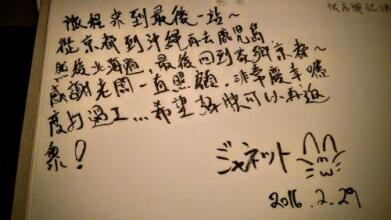 旅程來到最後一站～
從京都到沖繩再去鹿兒島
然後北海道，最後回到家鄉京都～
感謝老闆一直照顧，非常慶幸嚐
度打過工...希望趕快可以再返
來！
ジャネット
2016.2.29